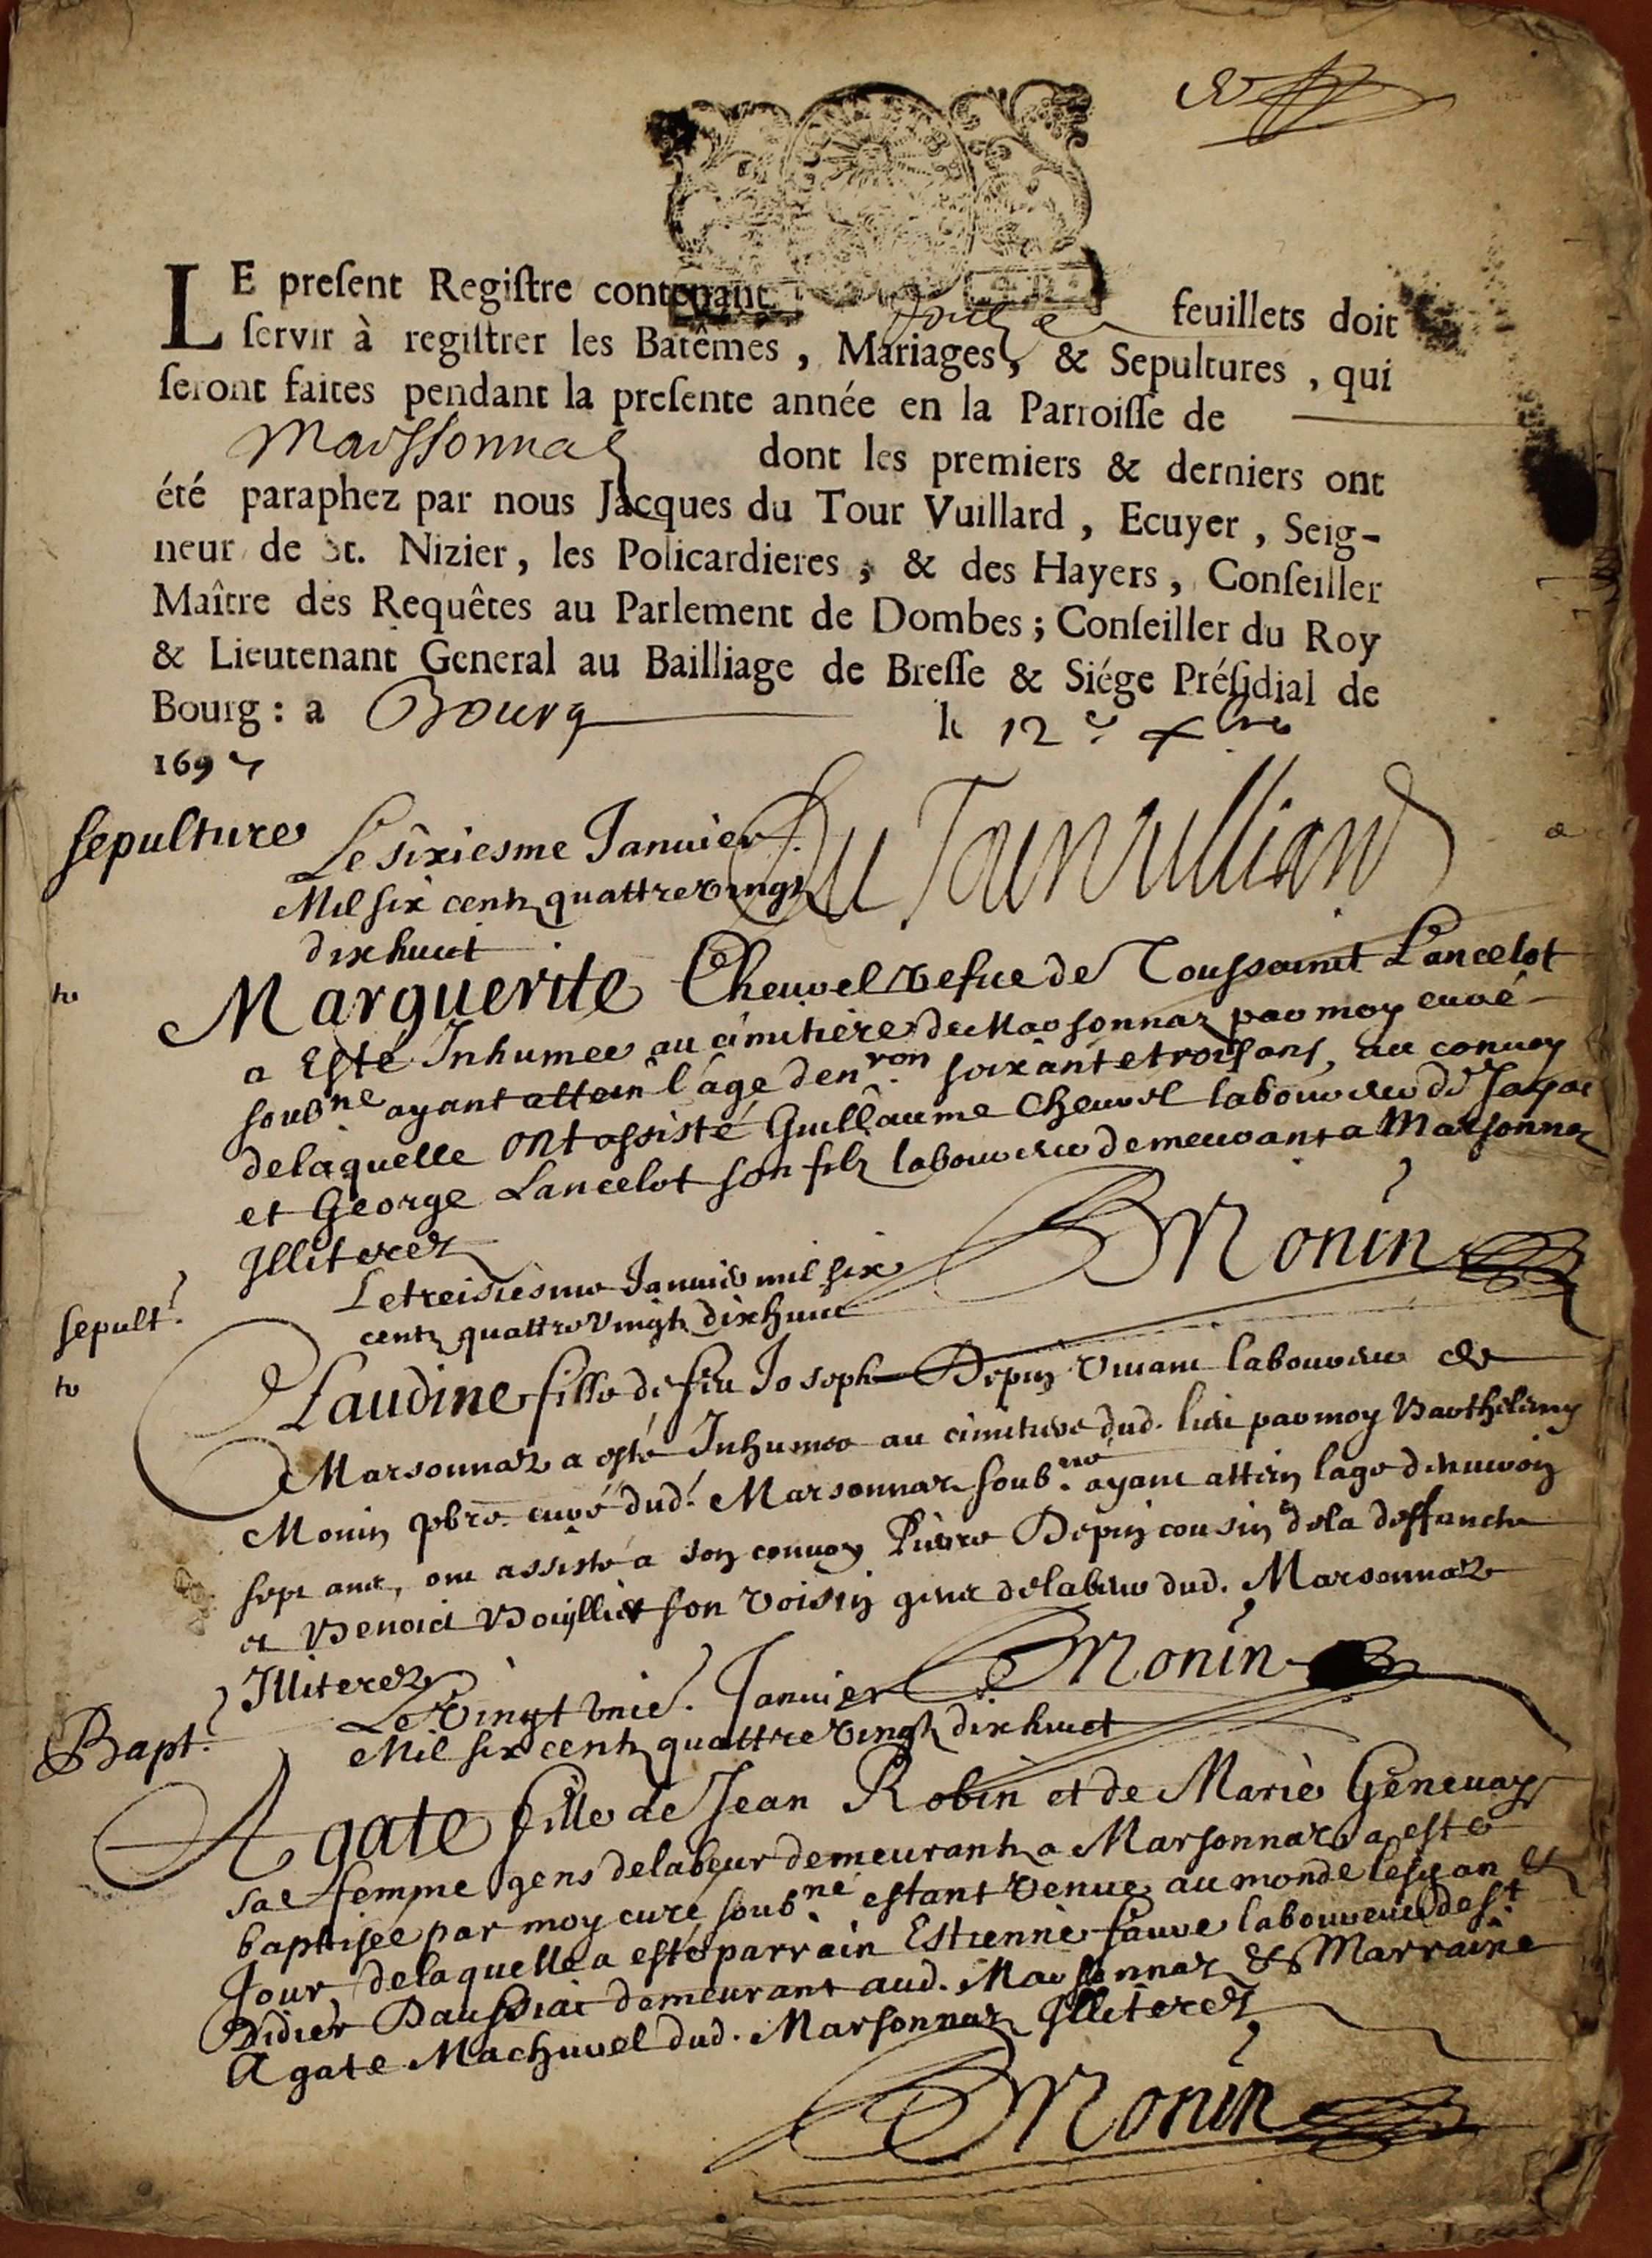 LE preſent Regiſtre contenant douze feuillets doit
ſervir à regiſtrer les Batêmes, Mariages, & Sepultures, qui
ſeront faites pendant la preſente année en la Parroiſſe de
Marssonnas dont les premiers & derniers ont
été paraphez par nous Jacques du Tour Vuillard, Ecuyer, Seig-
neur de St. Nizier, les Policardieres, & des Hayers, Conſeiller
Maître des Requêtes au Parlement de Dombes; Conſeiller du Roy
& Lieutenant General au Bailliage de Breſſe & Siége Préſidial de
Bourg: a Bourg le 12e xbre
1697
Sepulture
Le sixiesme Januier
Mil six centz quattre vingtz
dixhuict
Du Tour Vulliard
Marguerite Cheuvel vefue de Toussainct Lancelot
a Esté Inhumee au cimitière de Marsonnaz par moy curé
soubne ayant attein l'âge denron soixante trois ans, au conuoy
delaquelle ont assisté Guillaume Cheuvel laboureur de Jayac
et George Lancelot son filz laboureur demeurant a Marsonnaz
Illiterez
Monin
Sepult.
Le treisiesme Januier mil six
centz quattre vingtz dixhuict
Claudine fille de feu Joseph Depin viuant laboureur de
Marsonnaz a esté Inhumee au cimitiere dud. lieu par moy Barthelemy
Monin pbre curé dud. Marsonnaz soub.né ayant attein lage denuiron
sept ans, ont assisté a son conuoy Pierre Depin cousin de la deffuncte
et Benoict son voisin gens de labeur dud. Marsonnaz
Illiterez
Monin
Bapt.
Le vingt vnie. Januier
Mil six centz quattre vingtz dixhuict
Agate fille de Jean Robin et de Marie Geneuay
sae femme gens delabeur demeurantz a Marsonnaz a esté
baptisée par moy curé soub.né estant venue au monde lesd an et
Jour delaquelle a esté parrain Estienne fauve laboureur de St.
Didier Daussiac demeurant aud. Marsonnaz & Marraine
Agate Machuvel dud. Marsonnaz Illiterez
Monin